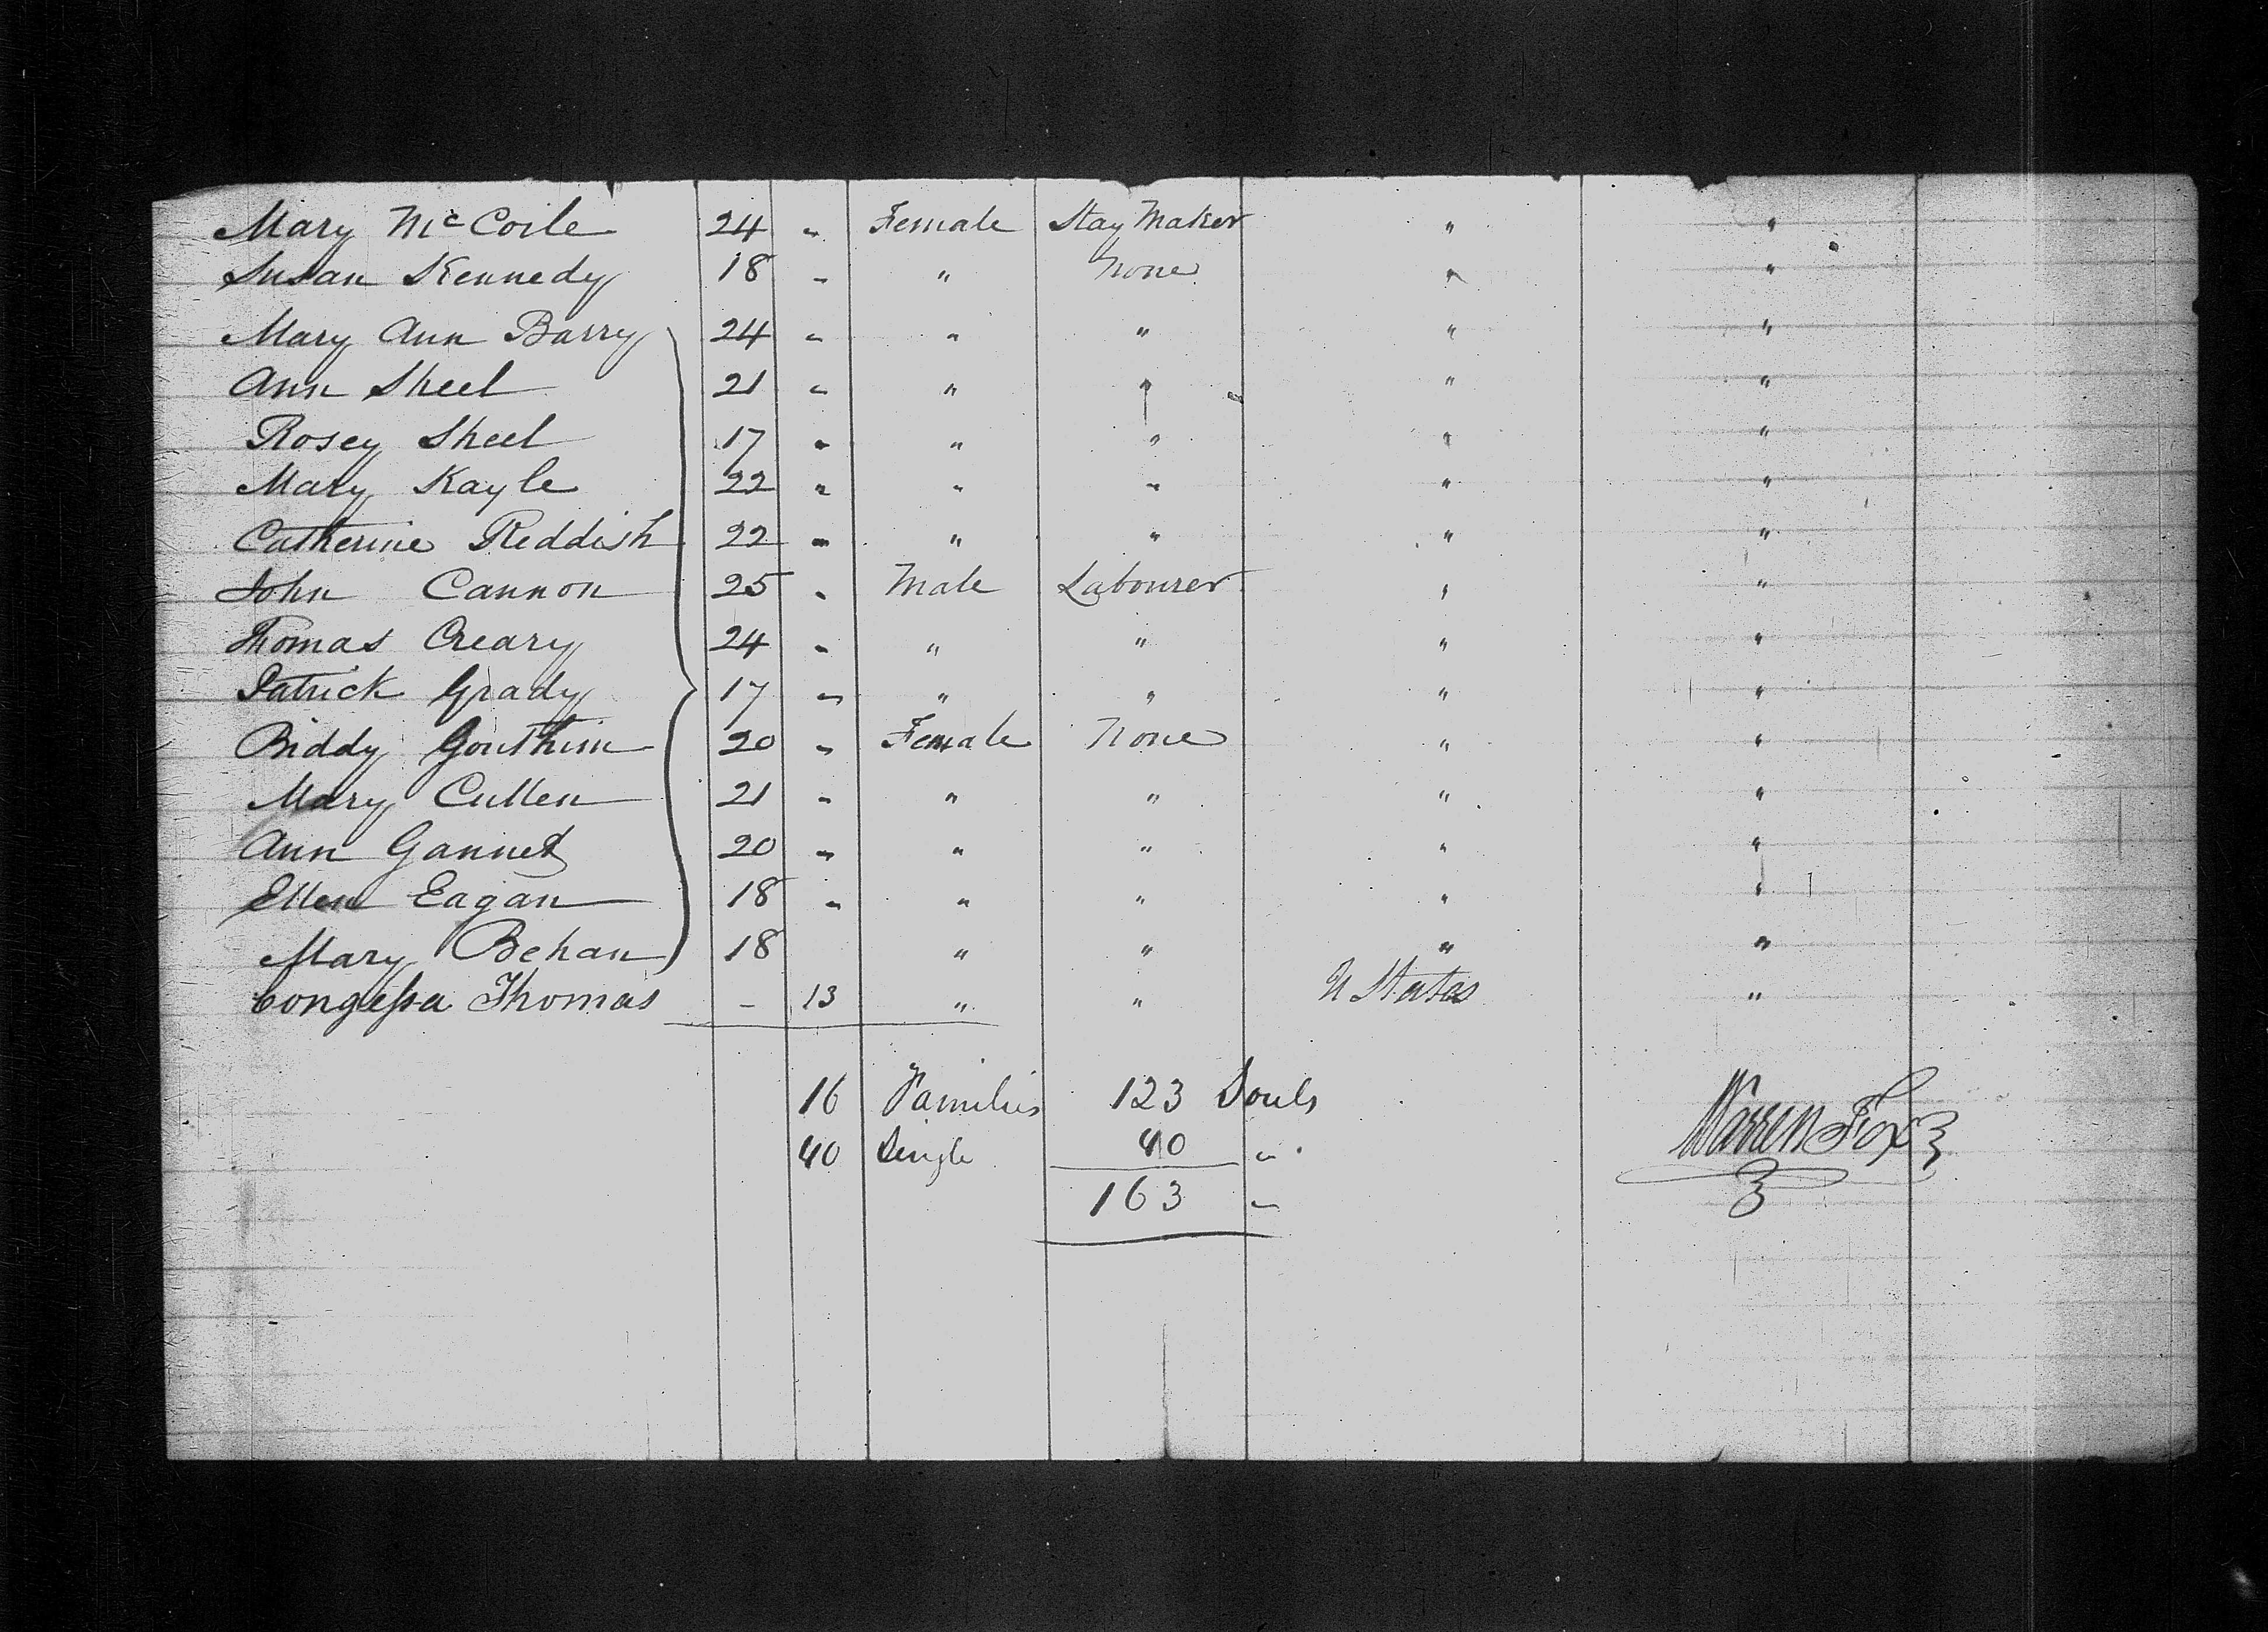 Mary McCoile 24 " Female Stay Maker " "
Susan Kennedy 18 " " None " "
Mary Ann Barry 24 " " " " "
Ann Skeel 21 " " " " "
Rosey Skeel 17 " " " " "
Mary Kayle 22 " " " " "
Catherine Reddish 22 " " " " "
John Cannon 25 " Male Labourer " "
Thomas Creary 24 " " " " "
Patrick Grady 17 " " " " "
Biddy Gouthim 20 " Female None " "
Mary Cullen 21 " " " " "
Ann Gannet 20 " " " " "
Ellen Eagan 18 " " " " "
Mary Behan 18 " " " "
Congessa Thomas - 13 " " U States "
16 Families 123 Souls
40 Single 40 "
163 "
Warren Fox